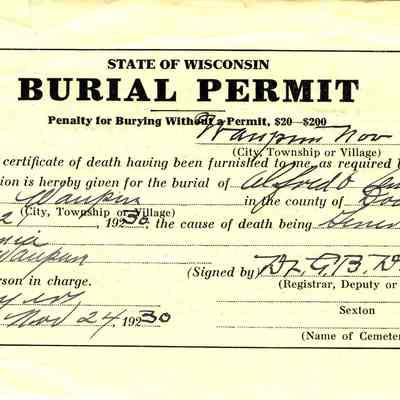 STATE OF WISCONSIN
BURIAL PERMIT
Penalty for Burying Without a Permit, $20—$200
Waupun Nov
(City, Township or Village)
certificate of death having been furnished to me as required b
ion is hereby given for the burial of Alfred O
Waupun in the county of
(City, Township or Village)
, 1930, the cause of death being
Waupun
(Signed by) Dr. G. B. D
erson in charge. (Registrar, Deputy or
Nov 24, 19230
Sexton
(Name of Cemete